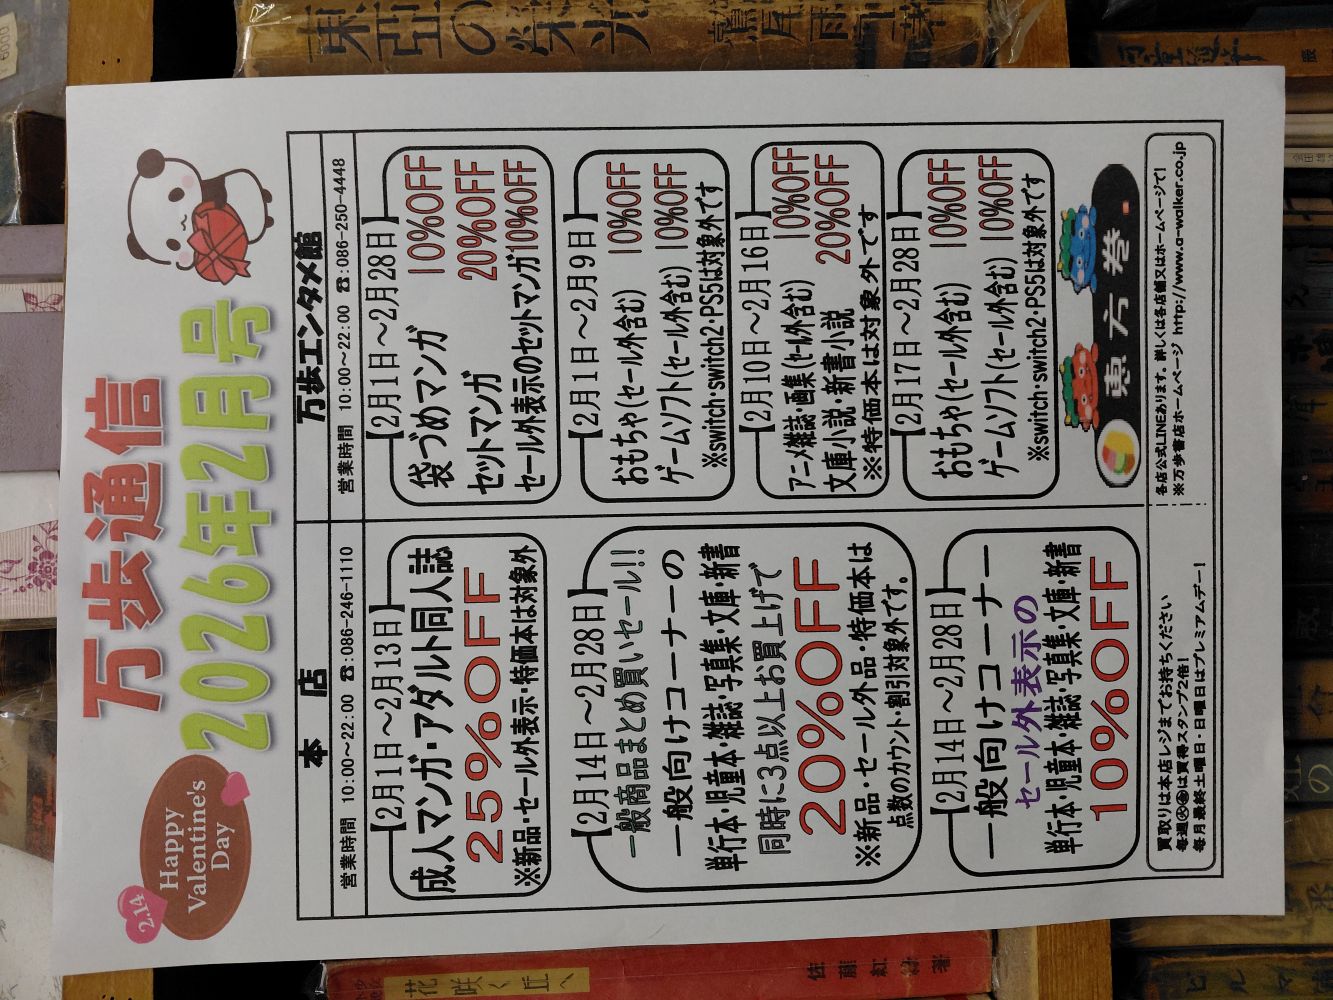 万歩通信
2026年2月号
2.14
Happy
Valentine's
Day
本 店
営業時間 10:00～22:00 ☎:086-246-1110
【2月1日～2月13日】
成人マンガ・アダルト同人誌
25%OFF
※新品・セール外表示・特価本は対象外
【2月14日～2月28日】
一般商品まとめ買いセール!!
一般向けコーナーの
単行本・児童本・雑誌・写真集・文庫・新書
同時に3点以上お買上げで
20%OFF
※新品・セール外品・特価本は
点数のカウント・割引対象外です。
【2月14日～2月28日】
一般向けコーナー
セール外表示の
単行本・児童本・雑誌・写真集・文庫・新書
10%OFF
買取りは本店レジまでお持ちください
毎週㊋㊎は買得スタンプ2倍!
毎月最終土曜日・日曜日はプレミアムデー!
万歩エンタメ館
営業時間 10:00～22:00 ☎:086-250-4448
【2月1日～2月28日】
袋づめマンガ 10%OFF
セットマンガ 20%OFF
セール外表示のセットマンガ10%OFF
【2月1日～2月9日】
おもちゃ(セール外含む) 10%OFF
ゲームソフト(セール外含む) 10%OFF
※switch・switch2・PS5は対象外です
【2月10日～2月16日】
アニメ雑誌・画集(セール外含む) 10%OFF
文庫小説・新書小説 20%OFF
※特価本は対象外です
【2月17日～2月28日】
おもちゃ(セール外含む) 10%OFF
ゲームソフト(セール外含む) 10%OFF
※switch・switch2・PS5は対象外です
恵方巻
各店公式LINEあります。詳しくは各店舗又はホームページで!
※万歩書店ホームページ http://www.a-walker.co.jp
東亞の榮光
花咲く丘へ
佐藤紅緑著